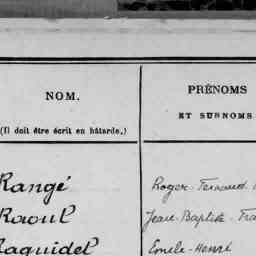 NOM.
(Il doit être écrit en bâtarde.)
PRÉNOMS
ET SURNOMS
Rangé
Roger-Fernand
Raoul
Jean-Baptiste-Fra
Raguidel
Emile-Henri